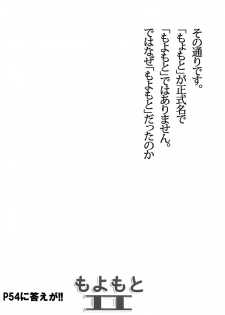 その通りです。
「もょもと」が正式名で
「もよもと」ではありません。
ではなぜ「もよもと」だったのか
もよもと
II
P54に答えが!!